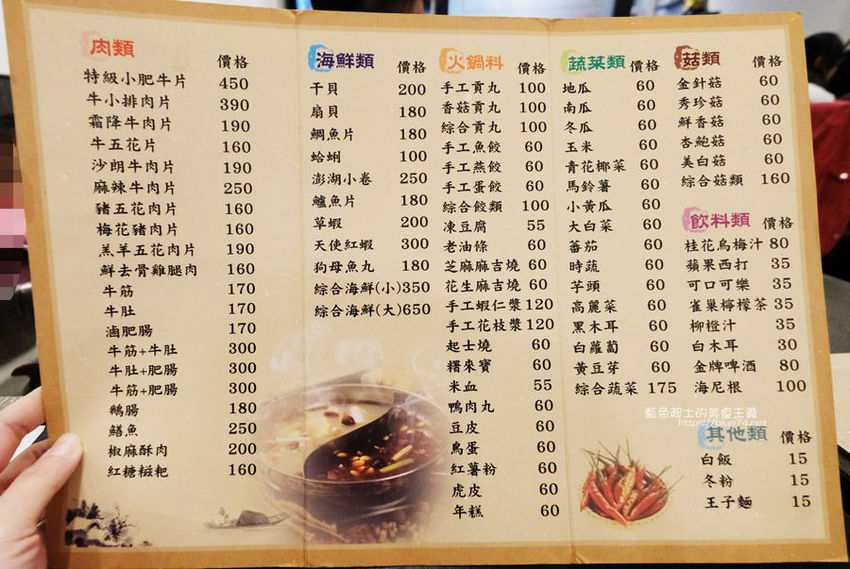 肉類 價格
特級小肥牛片 450
牛小排肉片 390
霜降牛肉片 190
牛五花片 160
沙朗牛肉片 190
麻辣牛肉片 250
豬五花肉片 160
梅花豬肉片 160
羔羊五花肉片 190
鮮去骨雞腿肉 160
牛筋 170
牛肚 170
滷肥腸 170
牛筋+牛肚 300
牛肚+肥腸 300
牛筋+肥腸 300
鵝腸 180
鱔魚 250
椒麻酥肉 200
紅糖糍粑 160
海鮮類 價格
干貝 200
扇貝 180
鯛魚片 180
蛤蜊 100
澎湖小卷 250
鱸魚片 180
草蝦 200
天使紅蝦 300
狗母魚丸 180
綜合海鮮(小)350
綜合海鮮(大)650
火鍋料 價格
手工貢丸 100
香菇貢丸 100
綜合貢丸 100
手工魚餃 60
手工燕餃 60
手工蛋餃 60
綜合餃類 100
凍豆腐 55
老油條 60
芝麻麻吉燒 60
花生麻吉燒 60
手工蝦仁漿 120
手工花枝漿 120
起士燒 60
糬來寶 60
米血 55
鴨肉丸 60
豆皮 60
鳥蛋 60
紅薯粉 60
虎皮 60
年糕 60
蔬菜類 價格
地瓜 60
南瓜 60
冬瓜 60
玉米 60
青花椰菜 60
馬鈴薯 60
小黃瓜 60
大白菜 60
蕃茄 60
時蔬 60
芋頭 60
高麗菜 60
黑木耳 60
白蘿蔔 60
黃豆芽 60
綜合蔬菜 175
菇類 價格
金針菇 60
秀珍菇 60
鮮香菇 60
杏鮑菇 60
美白菇 60
綜合菇類 160
飲料類 價格
桂花烏梅汁 80
蘋果西打 35
可口可樂 35
雀巢檸檬茶 35
柳橙汁 35
白木耳 30
金牌啤酒 80
海尼根 100
藍色起士的美食主義
https://blue74.net
其他類 價格
白飯 15
冬粉 15
王子麵 15